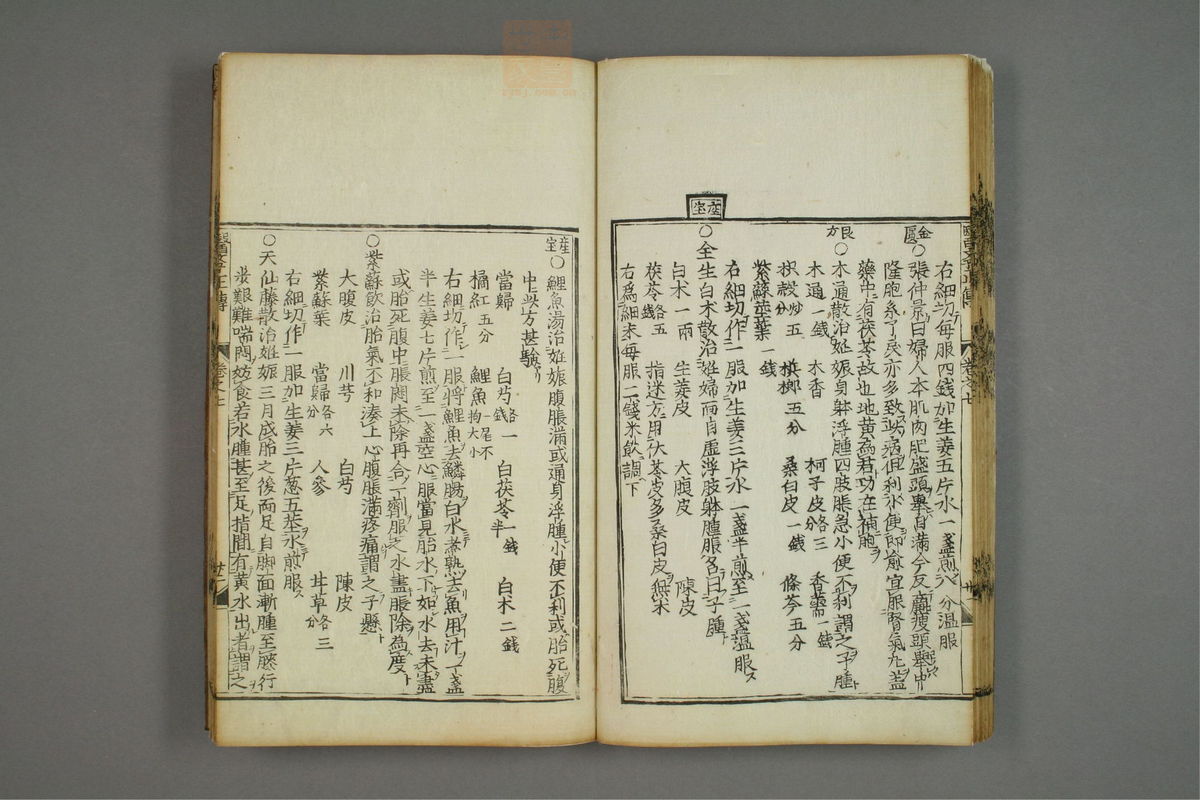 右細切每服四錢加生姜五片水一盞煎八分溫服
金匱
○張仲景曰婦人本肌肉肥盛頭舉自滿今反羸瘦頭舉中
隆胞系了戾亦多致此病但利水便即愈宜服腎氣丸盖
藥中有茯苓故也地黃為君功在補胞
良方
○木通散治妊娠身躰浮腫四肢脹急小便不利謂之子腫
木通一錢 木香 柯子皮各三分 香薷一錢
枳殼炒五分 檳榔五分 桑白皮一錢 條芩五分
紫蘇莖葉一錢
右細切作一服加生姜三片水一盞半煎至一盞溫服
産宝
○全生白朮散治妊婦面目虛浮肢躰腫脹名曰子腫
白朮一兩 生姜皮 大腹皮 陳皮
茯苓各五錢 指迷方用伏苓皮多桑白皮無朮
右爲細末每服二錢米飲調下
醫學正傳 卷之七 廿一
産宝
○鯉魚湯治妊娠腹脹滿或通身浮腫小便不利或胎死腹
中此方甚驗
當歸 白芍各一錢 白茯苓一錢半 白朮二錢
橘紅五分 鯉魚一尾不拘大小
右細切作一服將鯉魚去鱗腸白水煮熟去魚用汁一盞
半生姜七片煎至一盞空心服當見胎水下如水去未盡
或胎死腹中脹悶未除再合一劑服之水盡脹除為度
○紫蘇飲治胎氣不和湊上心腹脹滿疼痛謂之子懸
大腹皮 川芎 白芍 陳皮
紫蘇葉 當歸各六分 人參 甘草各三分
右細切作一服加生姜三片葱五莖水煎服
○天仙藤散治妊娠三月成胎之後兩足自脚面漸腫至腿行
步艱難喘悶妨食若水腫甚至足指間有黃水出者謂之
醫學正傳 卷之七 廿二